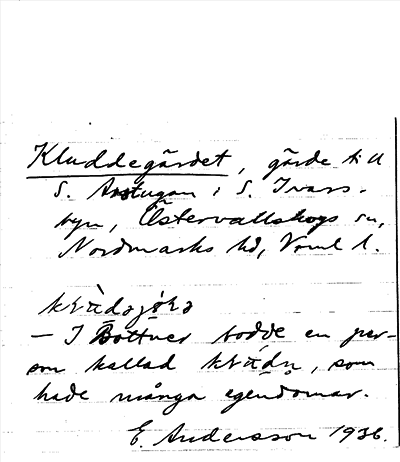 Kluddegärdet, gärde till
S. Arstugan i S. Ivars-
byn, Östervallskogs sn,
Nordmarks hd, Vrml l.
— I Bottner bodde en per-
son kallad
, som
hade många egendomar.
E. Andersson 1936.